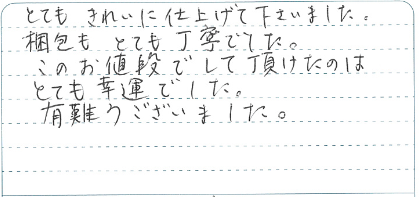 とても きれいに仕上げて下さいました。
梱包も とても丁寧でした。
このお値段でして頂けたのは
とても幸運でした。
有難うございました。